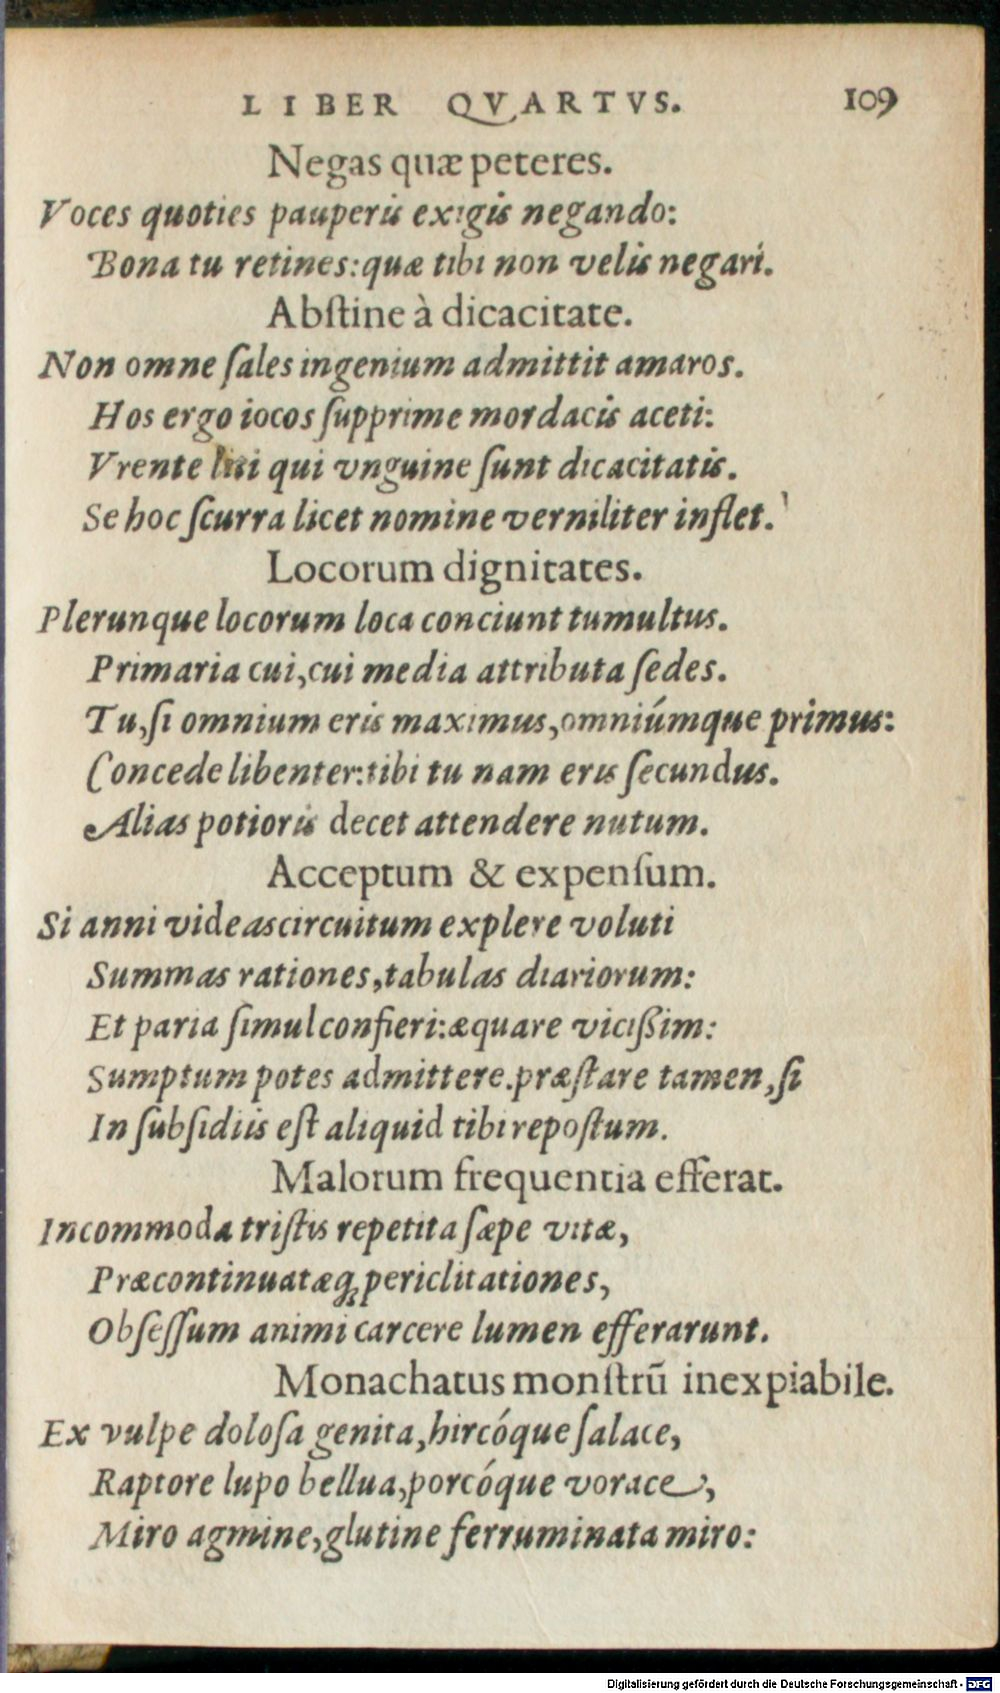 LIBER QVARTVS. 109
Negas quæ peteres.
Voces quoties pauperis exigis negando:
Bona tu retines: quæ tibi non velis negari.
Abſtine à dicacitate.
Non omne ſales ingenium admittit amaros.
Hos ergo iocos ſupprime mordacis aceti:
Vrente liti qui vnguine ſunt dicacitatis.
Se hoc ſcurra licet nomine verniliter inflet.
Locorum dignitates.
Plerunque locorum loca conciunt tumultus.
Primaria cui, cui media attributa ſedes.
Tu, ſi omnium eris maximus, omniúmque primus:
Concede libenter: tibi tu nam eris ſecundus.
Alias potioris decet attendere nutum.
Acceptum & expenſum.
Si anni videas circuitum explere voluti
Summas rationes, tabulas diariorum:
Et paria ſimul confieri: æquare vicißim:
Sumptum potes admittere. præſtare tamen, ſi
In ſubſidiis eſt aliquid tibi repoſtum.
Malorum frequentia efferat.
Incommoda triſtis repetita ſæpe vitæ,
Præcontinuatæq; periclitationes,
Obſeſſum animi carcere lumen efferarunt.
Monachatus monſtrū inexpiabile.
Ex vulpe doloſa genita, hircóque ſalace,
Raptore lupo bellua, porcóque vorace,
Miro agmine, glutine ferruminata miro:
Digitalisierung gefördert durch die Deutsche Forschungsgemeinschaft - DFG